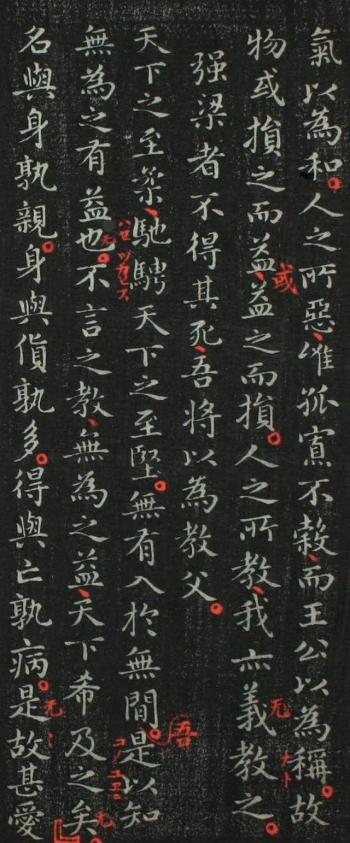 氣以為和。人之所惡、唯孤寡不穀、而王公以為稱。故
物或損之而益、益之而損。人之所教、我亦義教之。
强梁者不得其死、吾將以為教父。
天下之至柔、馳騁天下之至堅。無有入於無間。是以知
無為之有益也。不言之教、無為之益、天下希及之矣。
名與身孰親。身與貨孰多。得與亡孰病。是故甚愛
或
无
吾
无
无